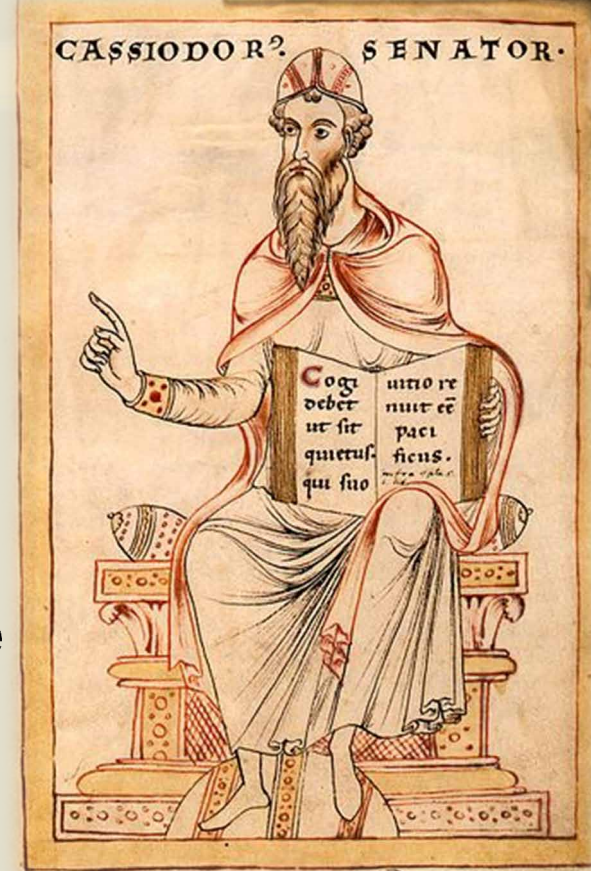 CASSIODORꝰ. SENATOR.
Cogi
debet
ut sit
quietus.
qui suo
uitio re
nuit eē
paci
ficus.